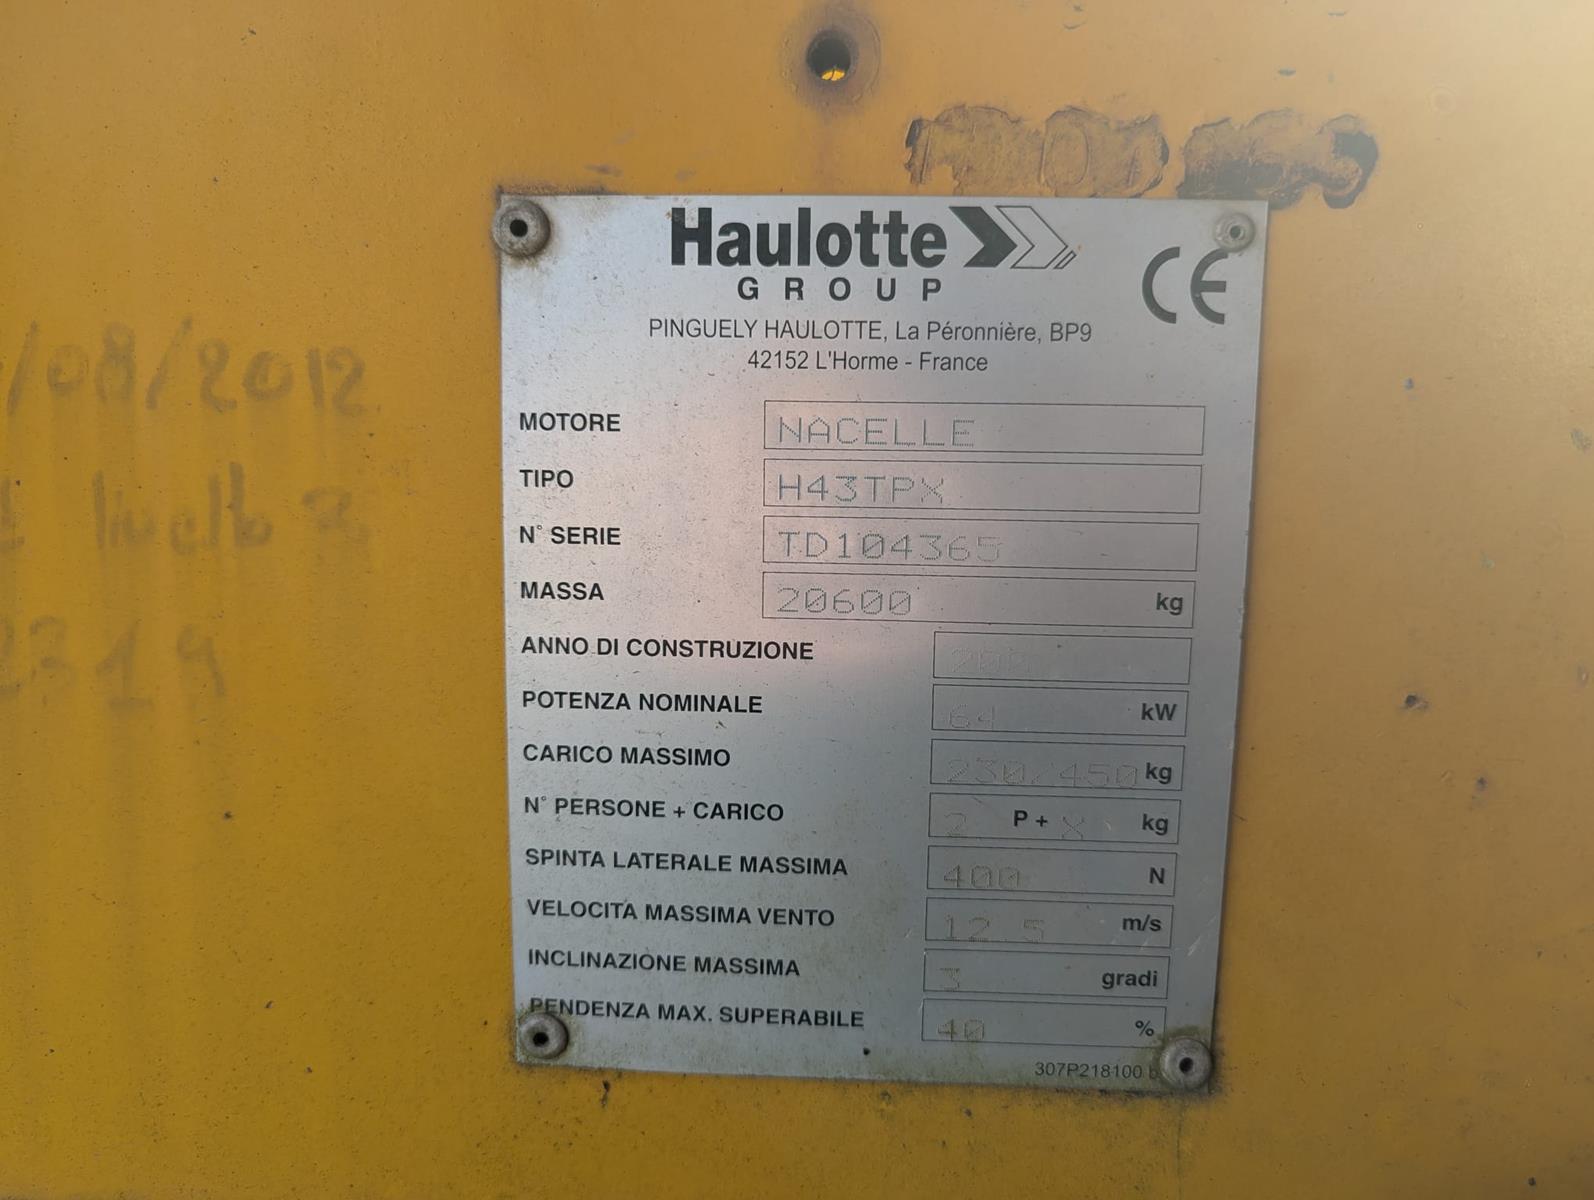 Haulotte
GROUP
CE
PINGUELY HAULOTTE, La Péronnière, BP9
42152 L'Horme - France
MOTORE NACELLE
TIPO H43TPX
N° SERIE TD104365
MASSA 20600 kg
ANNO DI CONSTRUZIONE
POTENZA NOMINALE 64 kW
CARICO MASSIMO 230/450 kg
N° PERSONE + CARICO 2 P + X kg
SPINTA LATERALE MASSIMA 400 N
VELOCITA MASSIMA VENTO 12.5 m/s
INCLINAZIONE MASSIMA 3 gradi
PENDENZA MAX. SUPERABILE 40 %
307P218100 b
/08/2012
livello
2319